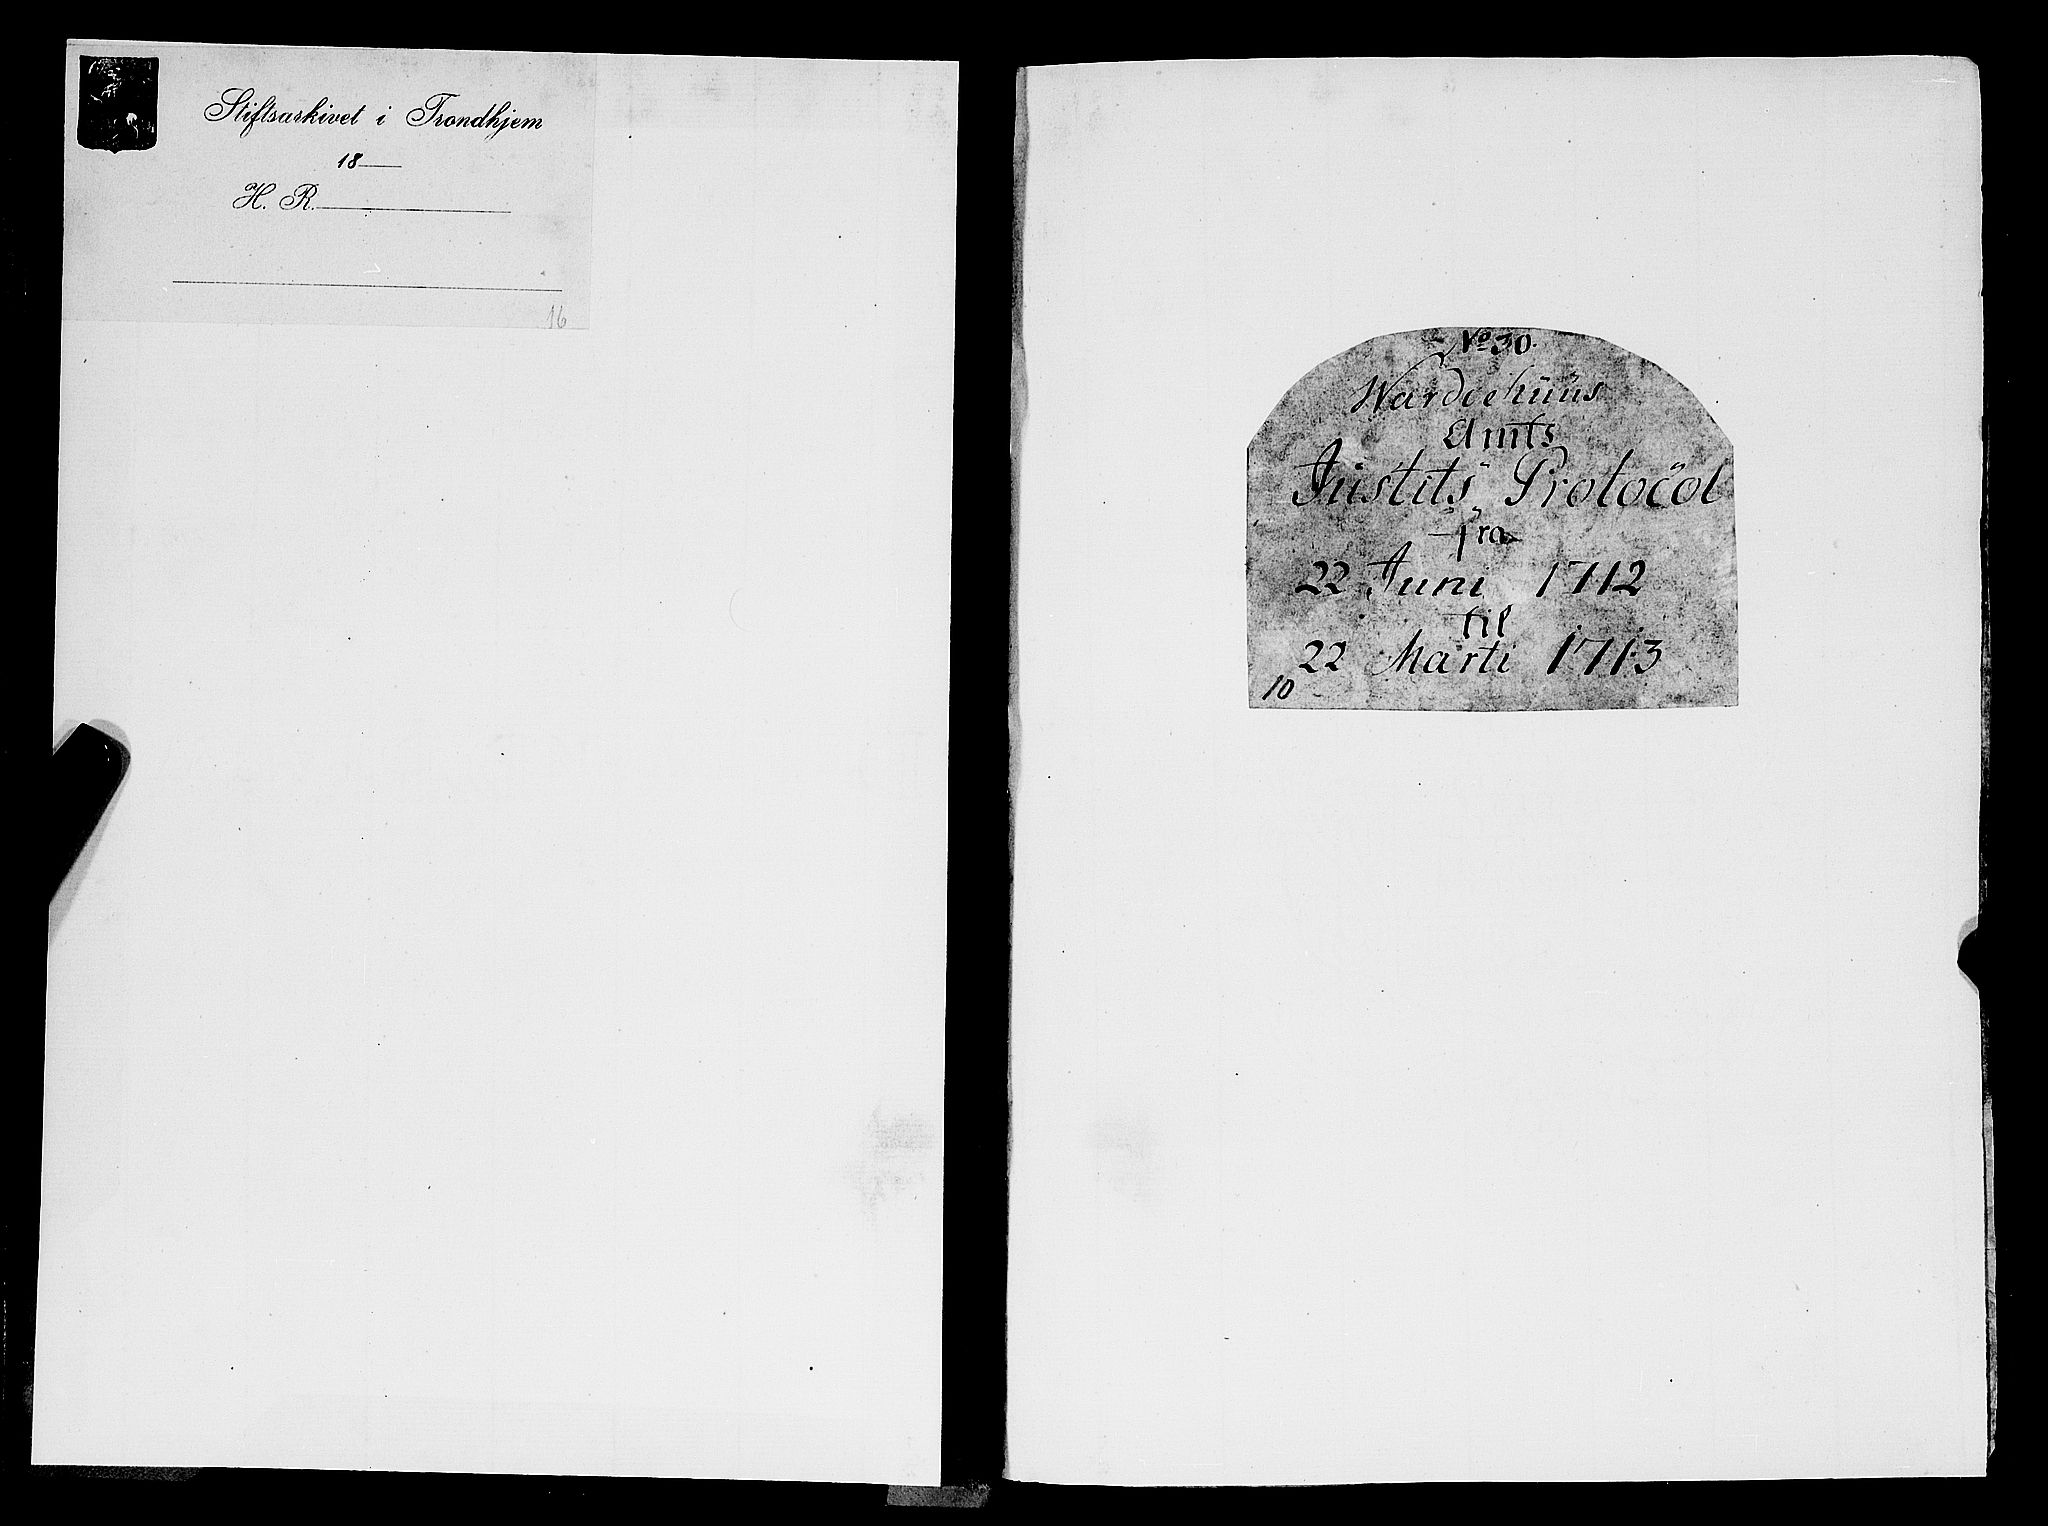 Stiftsarkivet i Trondhjem
18
H. R.
16
No 30.
Wardöehuus
Amts
Justits Protocol
fra
22 Juni 1712
til
22 Marti 1713
10